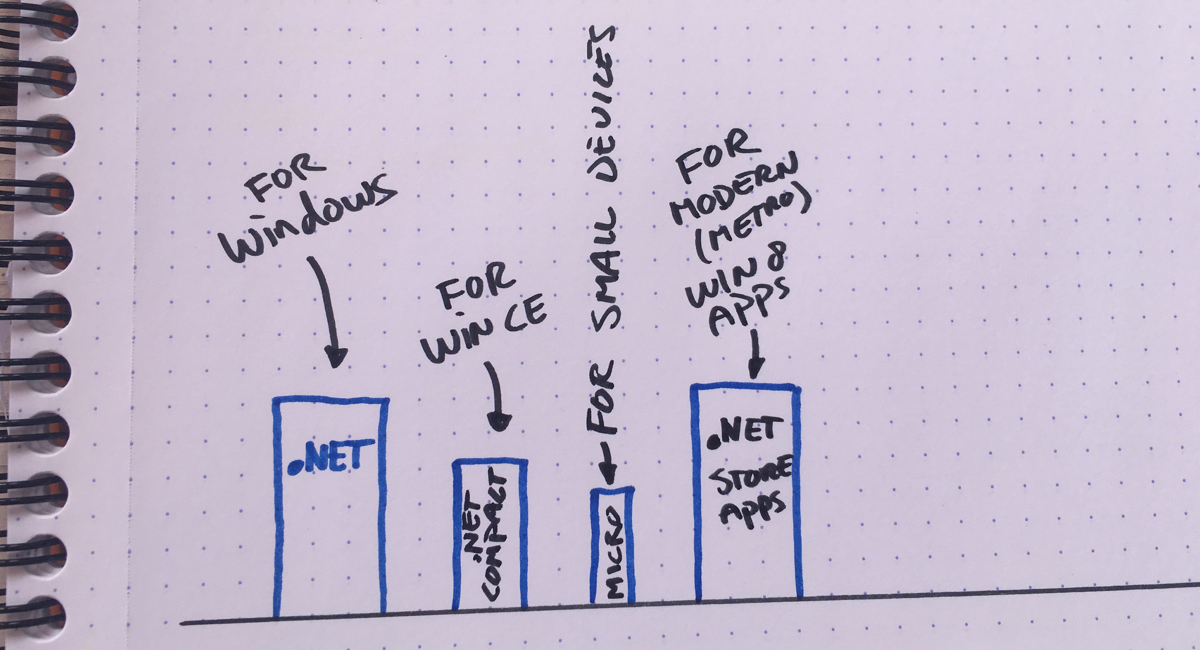 FOR
Windows
.NET
FOR
WIN CE
.NET
COMPACT
FOR SMALL DEVICES
MICRO
FOR
MODERN
(METRO)
WIN 8
APPS
.NET
STORE
APPS